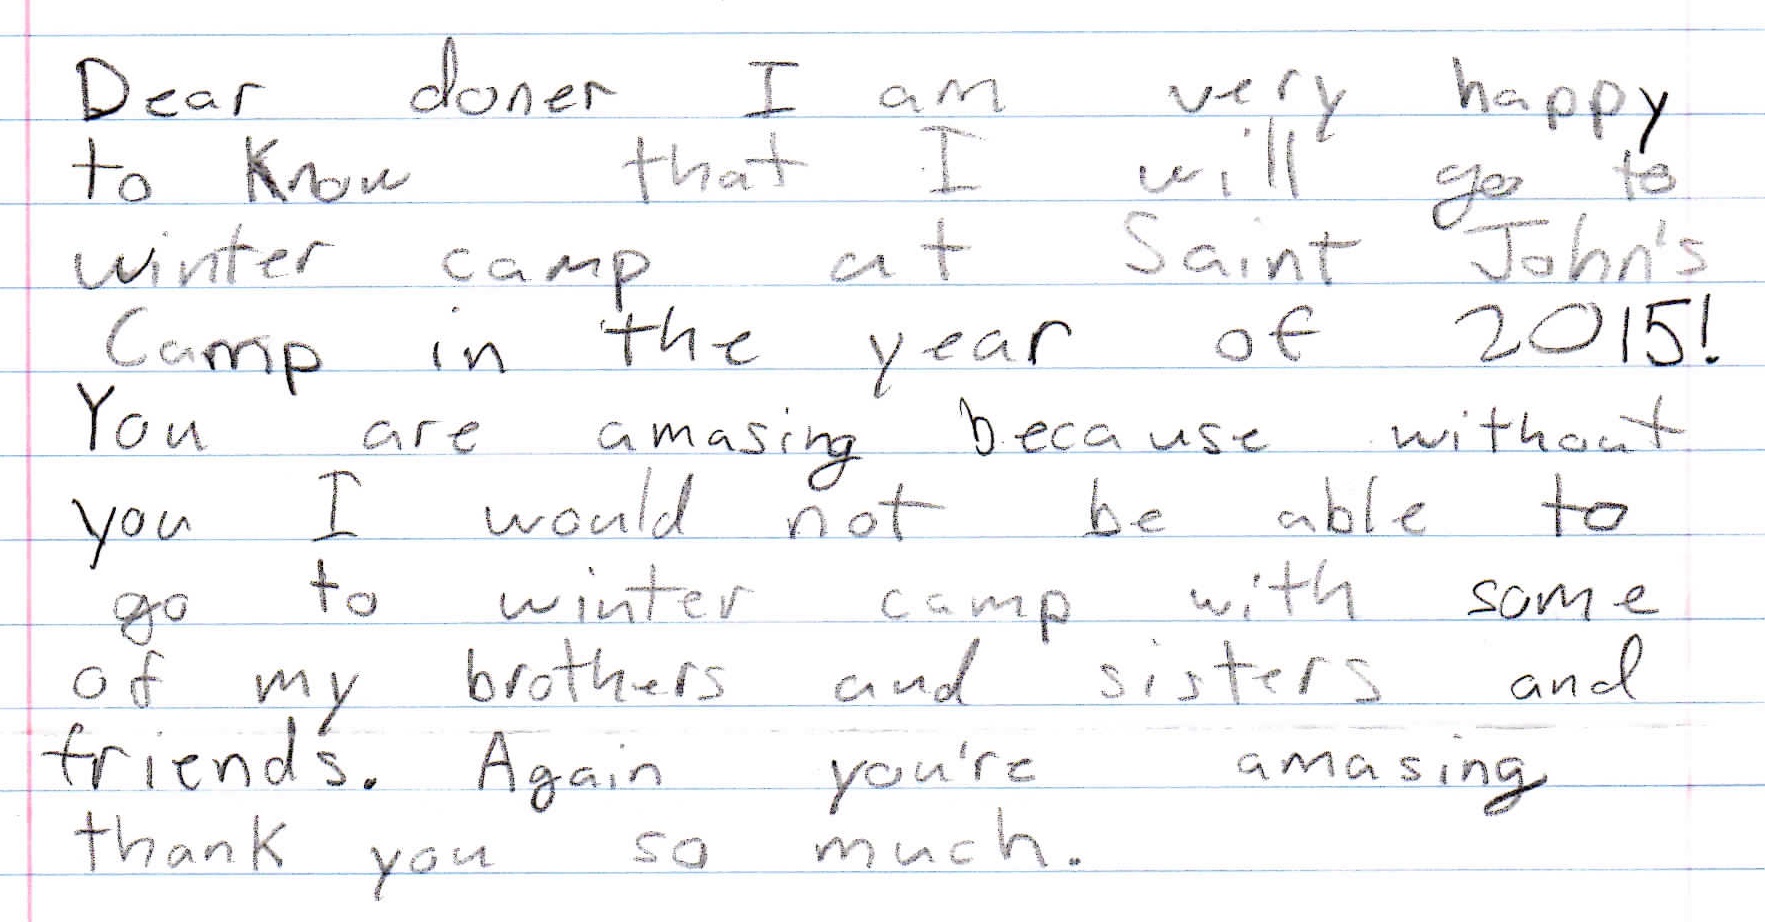 Dear doner I am very happy
to Know that I will go to
winter camp at Saint John's
Camp in the year of 2015!
You are amasing because without
you I would not be able to
go to winter camp with some
of my brothers and sisters and
friends. Again you're amasing
thank you so much.